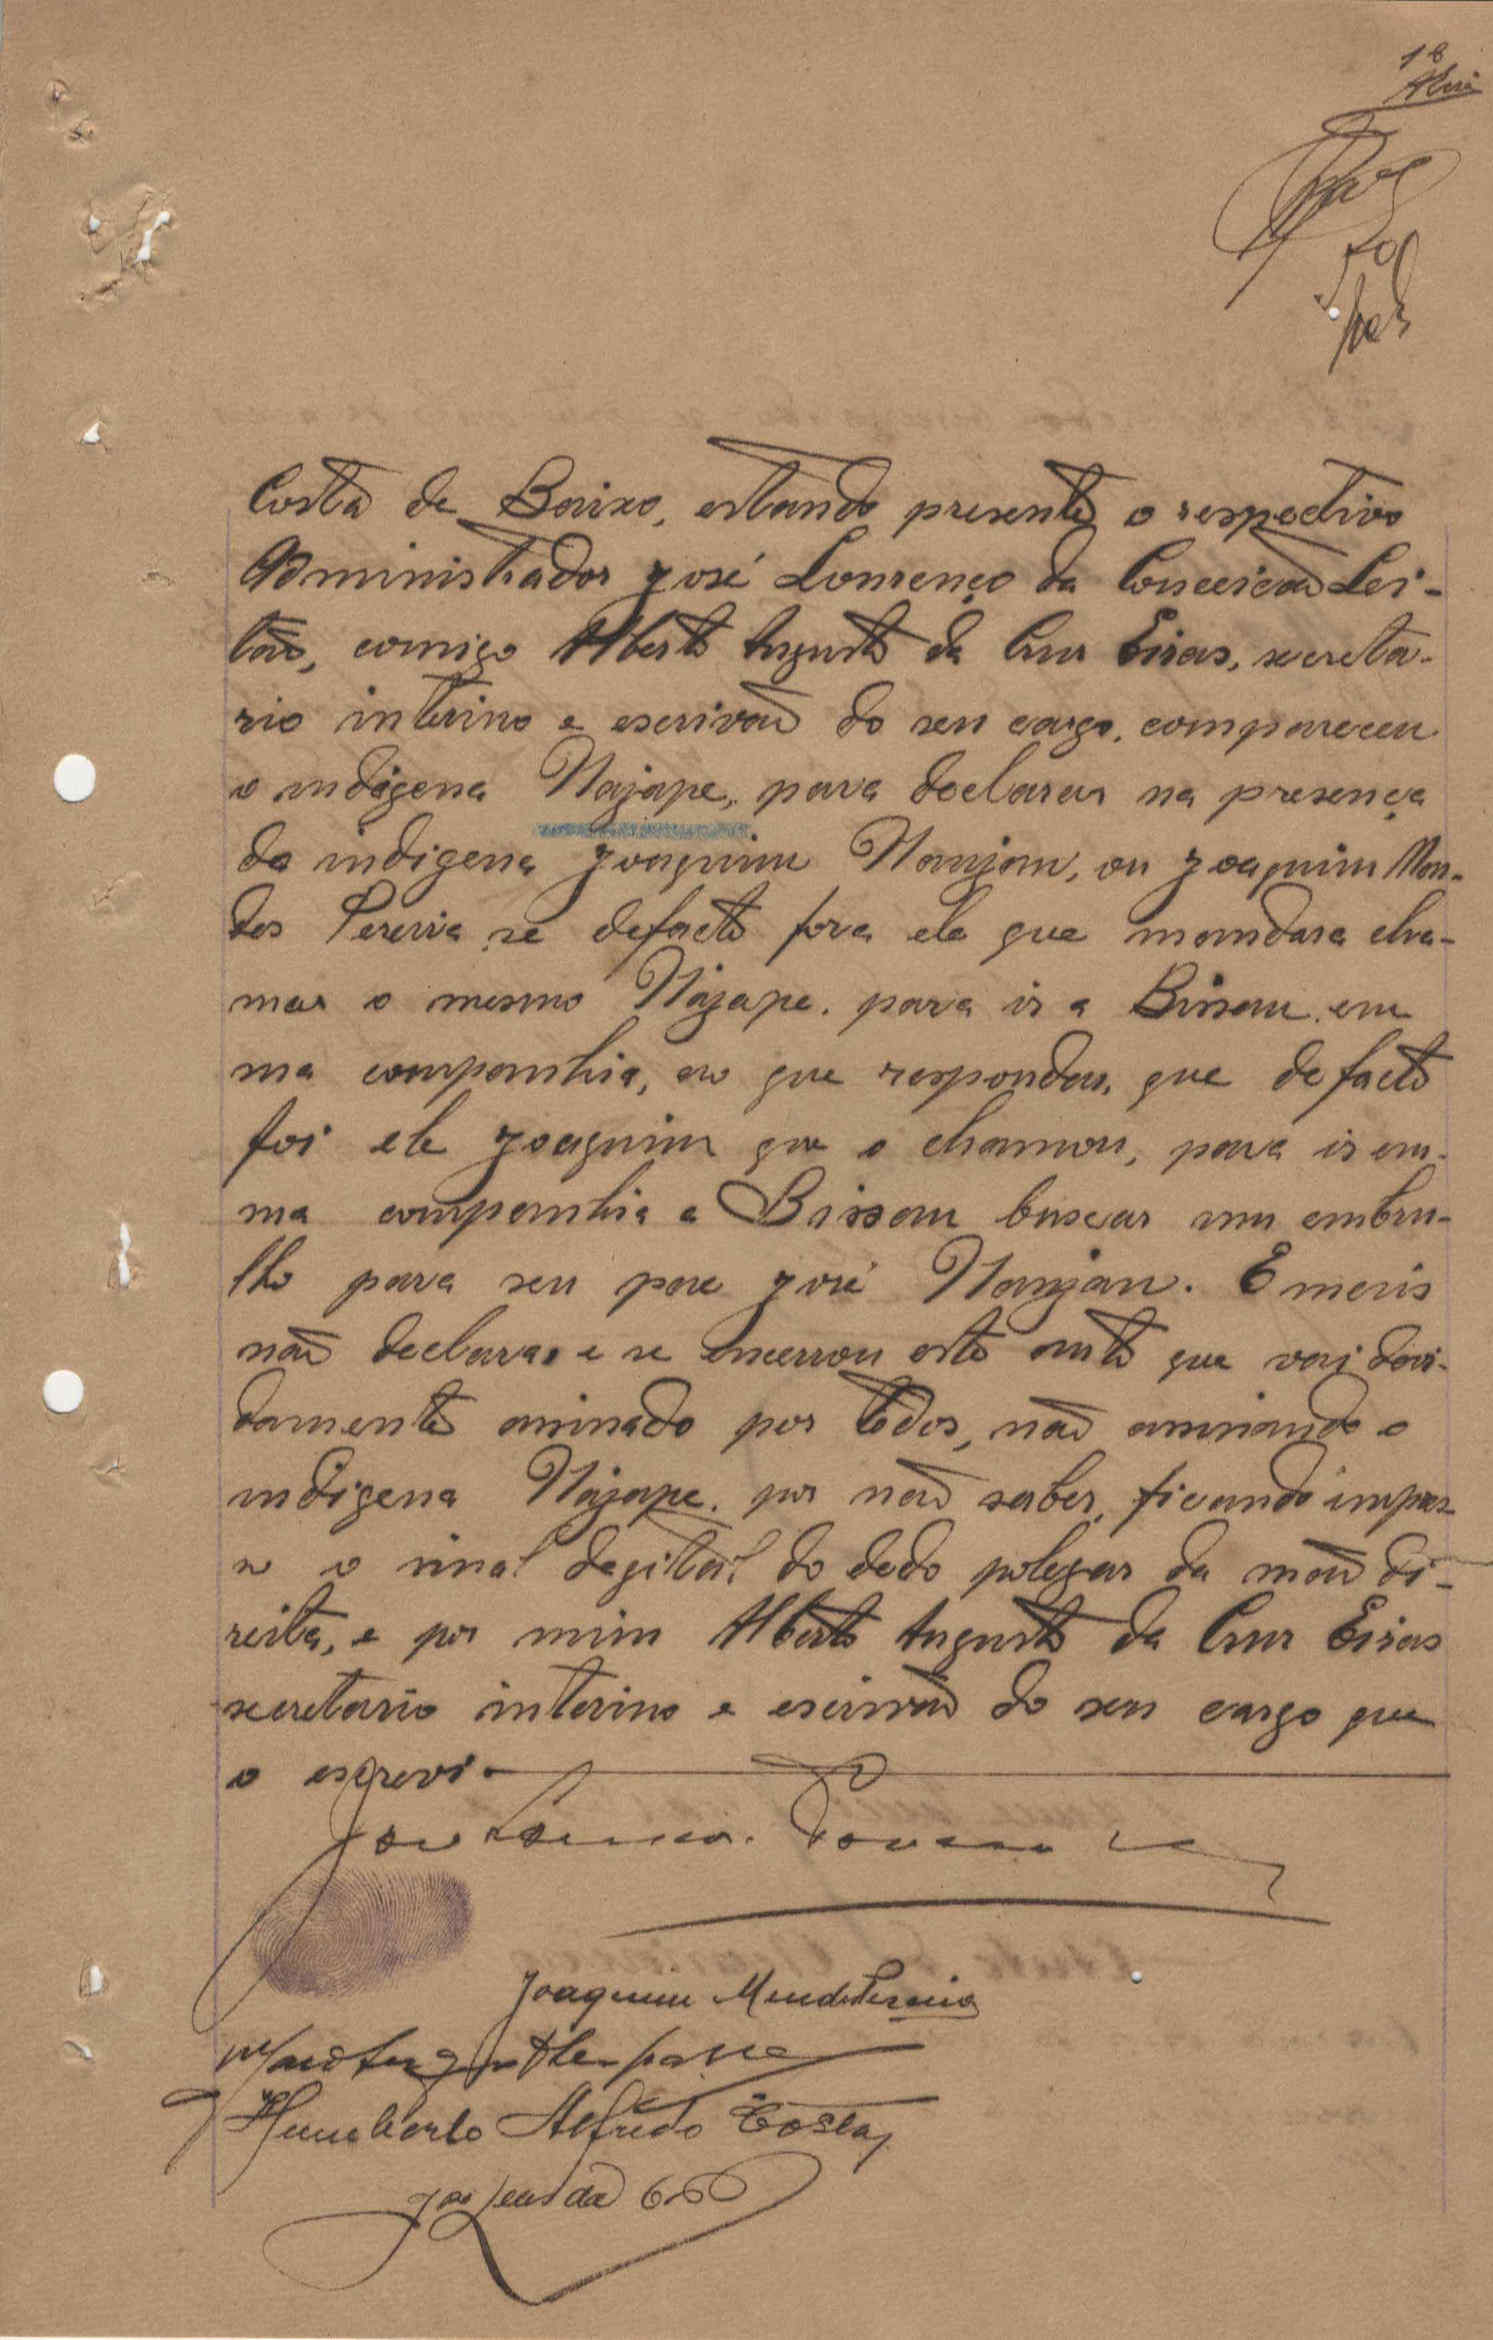 18
Costa de Baixo, estando presente o respectivo
Administrador José Lourenço da Conceição Lei-
tão, comigo Alberto Augusto da Cruz Eiras, secreta-
rio interino e escrivão do seu cargo, compareceu
o indigena Najape, para declarar na presença
do indigena Joaquim Nanjan, ou Joaquim Men-
des Pereira se defacto fora ele que mandara cha-
mar o mesmo Najape, para ir a Bissau, em
sua companhia, ao que respondeu, que de facto
foi ele Joaquim que o chamou, para ir em
sua companhia a Bissau buscar um embru-
lho para seu pae José Nanjan. E mais
não declarou e se encerrou este auto que vai devi-
damente assinado por todos, não assinando o
indigena Najape, por não saber, ficando impres-
so o sinal degital do dedo polegar da mão di-
reita, e por mim Alberto Augusto da Cruz Eiras
secretario interino e escrivão do seu cargo que
o escrevi.
José Lourenço
Joaquim Mendes Pereira
Humberto Alfredo Costa